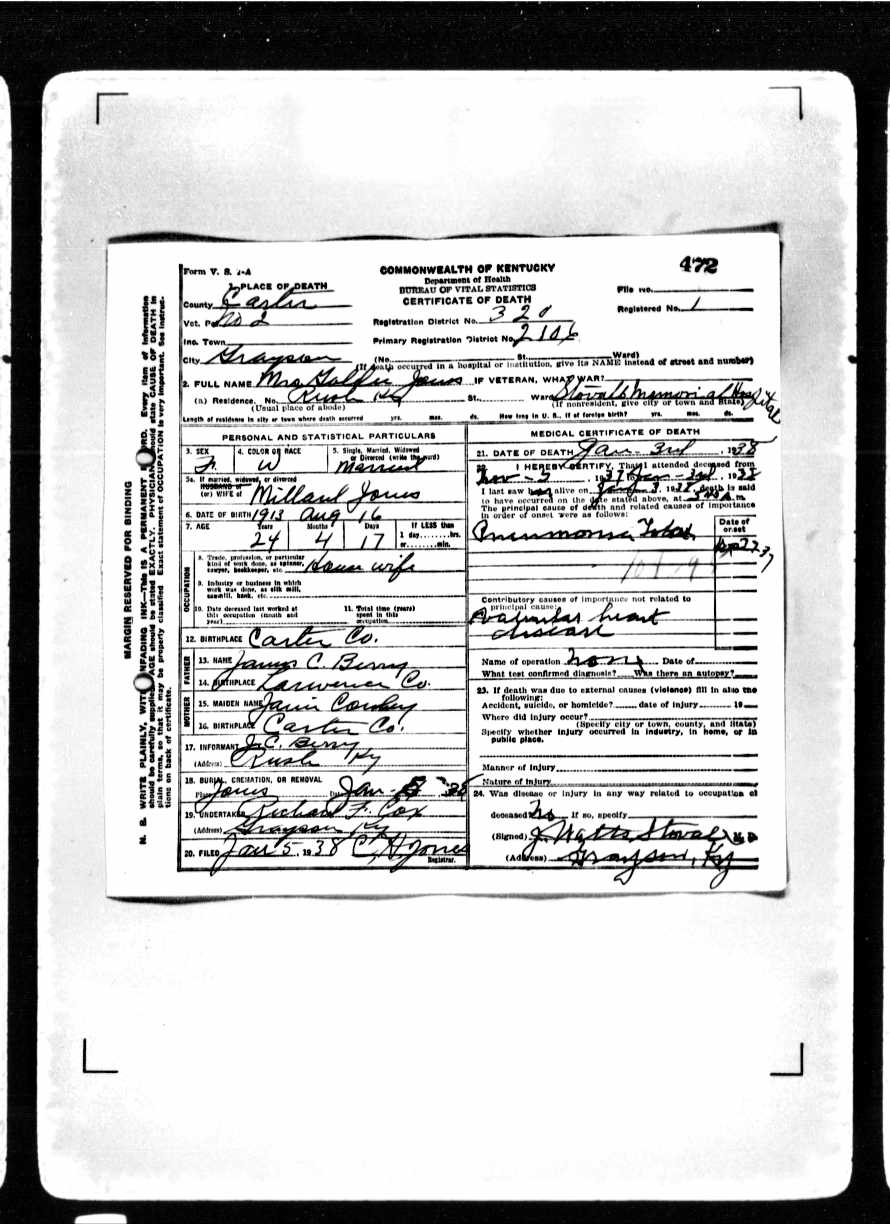 Form V. S. 1-A
COMMONWEALTH OF KENTUCKY
Department of Health
BUREAU OF VITAL STATISTICS
CERTIFICATE OF DEATH
472
File No.
Registered No. 1
1. PLACE OF DEATH
County Carter
Vot. Pct. No 2
Inc. Town
City Grayson
Registration District No. 320
Primary Registration District No. 2106
(No. St. Ward)
(If death occurred in a hospital or institution, give its NAME instead of street and number)
2. FULL NAME Mrs Jones IF VETERAN, WHAT WAR?
(a) Residence. No. Rush Ky St., Ward Stovall Memorial Hospital
(Usual place of abode) (If nonresident, give city or town and State)
Length of residence in city or town where death occurred yrs. mos. ds. How long in U. S., if of foreign birth? yrs. mos. ds.
PERSONAL AND STATISTICAL PARTICULARS
3. SEX F.
4. COLOR OR RACE W
5. Single, Married, Widowed or Divorced (write the word) Married
5a. If married, widowed, or divorced
HUSBAND of
(or) WIFE of Millard Jones
6. DATE OF BIRTH 1913 Aug 16
7. AGE Years 24 Months 4 Days 17 If LESS than 1 day hrs. or min.
OCCUPATION
8. Trade, profession, or particular kind of work done, as spinner, sawyer, bookkeeper, etc. House wife
9. Industry or business in which work was done, as silk mill, sawmill, bank, etc.
10. Date deceased last worked at this occupation (month and year)
11. Total time (years) spent in this occupation
12. BIRTHPLACE Carter Co.
FATHER
13. NAME James C. Berry
14. BIRTHPLACE Lawrence Co.
MOTHER
15. MAIDEN NAME
16. BIRTHPLACE Carter Co.
17. INFORMANT J. C. Berry
(Address) Rush Ky
18. BURIAL, CREMATION, OR REMOVAL
Place Jones Date Jan.
19. UNDERTAKER Richard F. Cox
(Address) Grayson Ky
20. FILED Jan 5, 1938 C. H. Jones
Registrar.
MEDICAL CERTIFICATE OF DEATH
21. DATE OF DEATH Jan - 3rd, 1938
22. I HEREBY CERTIFY, That I attended deceased from
Nov - 5, 1937 to Jan - 3rd, 1938
I last saw her alive on Jan 3, 1938, death is said
to have occurred on the date stated above, at m.
The principal cause of death and related causes of importance
in order of onset were as follows:
Date of onset
Pneumonia Lobar
Contributory causes of importance not related to
principal cause:
Valvular heart
disease
Name of operation None Date of
What test confirmed diagnosis? Was there an autopsy?
23. If death was due to external causes (violence) fill in also the
following:
Accident, suicide, or homicide? date of injury 19
Where did injury occur?
(Specify city or town, county, and State)
Specify whether injury occurred in industry, in home, or in
public place.
Manner of injury
Nature of injury
24. Was disease or injury in any way related to occupation of
deceased? No If so, specify
(Signed) J. Watts Stovall M. D.
(Address) Grayson, Ky
MARGIN RESERVED FOR BINDING
N. B. WRITE PLAINLY, WITH UNFADING INK—THIS IS A PERMANENT RECORD. Every item of information
should be carefully supplied. AGE should be stated EXACTLY. PHYSICIANS should state CAUSE OF DEATH in
plain terms, so that it may be properly classified. Exact statement of OCCUPATION is very important. See instruc-
tions on back of certificate.